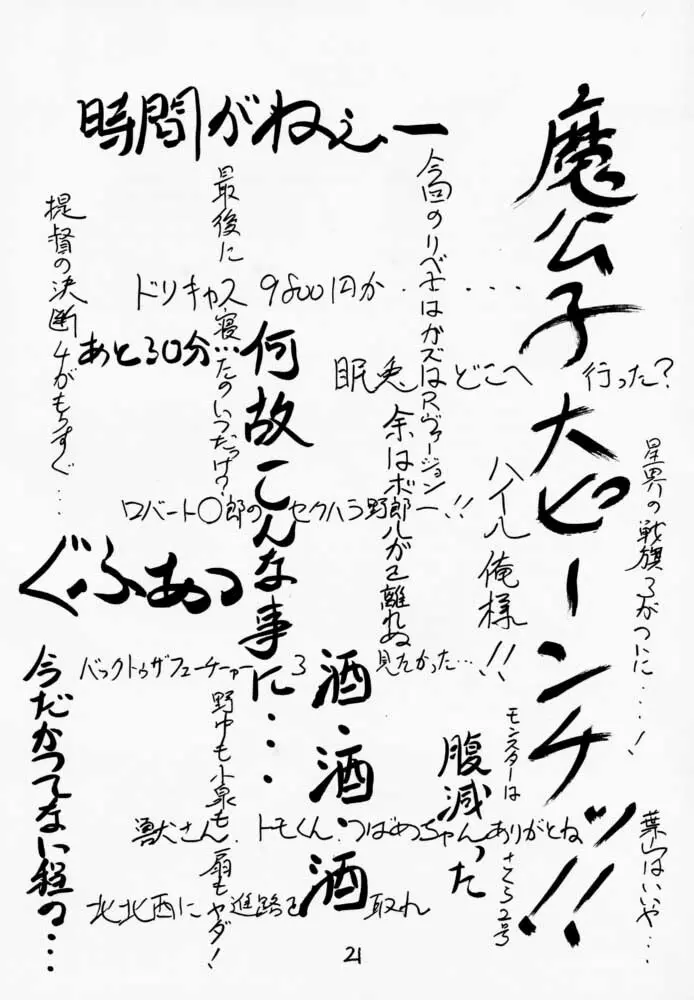 魔公子大ピーンチッ!!
時間がねぇー
星界の戦旗3がついに・・・・!
葉山はいいや・・・
ハイル俺様!!
モンスターは
さくら2号
腹減った
余はボ
が離れぬ
何故こんな事に・・・
酒・酒・酒
最後に
寝たのいつだっけ?
野中も小泉も扇もヤダ!
提督の決断4がもうすぐ・・・
今だかつてない程の・・・
ドリキャス9800円か・・・・・
あと30分・・・
眠兎どこへ行った?
ロバート〇郎のセクハラ野郎ー!!
ぐふぁっ
バックトゥザフューチャー3見たかった・・・
獣さん、トモくん、つばめちゃんありがとね
北北西に進路を取れ
21